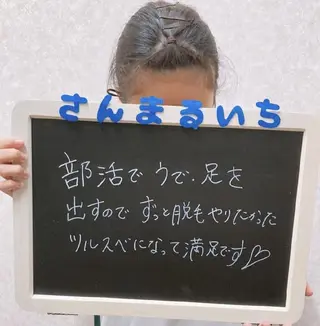 さんまるいち
部活で うで・足を
出すので ずっと脱毛やりたかった
ツルスベになって満足です♡